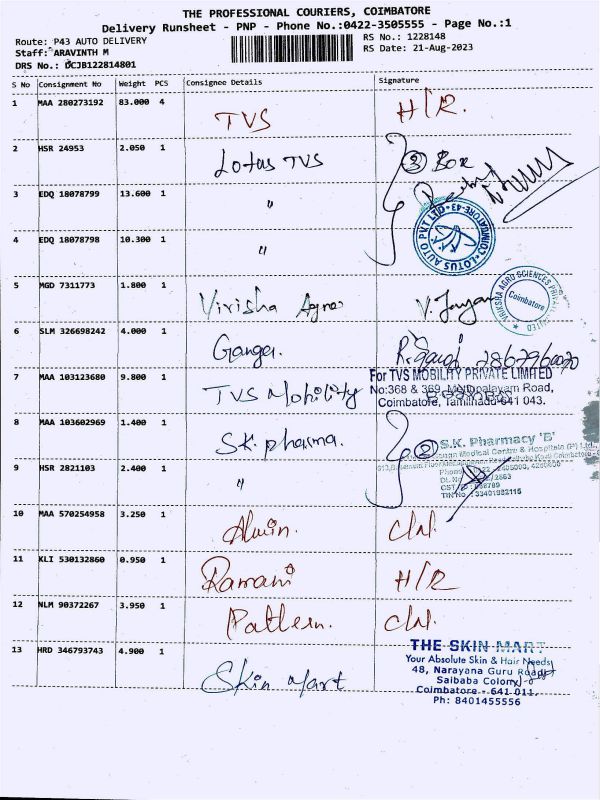 THE PROFESSIONAL COURIERS, COIMBATORE
Delivery Runsheet - PNP - Phone No.:0422-3505555 - Page No.:1
Route: P43 AUTO DELIVERY
RS No.: 1228148
Staff: ARAVINTH M
RS Date: 21-Aug-2023
DRS No.: DCJB122814801
S No Consignment No Weight PCS Consignee Details Signature
1 MAA 280273192 83.000 4 TVS H/R.
2 HSR 24953 2.050 1 Lotus TVS ③ Box
3 EDQ 18078799 13.600 1 "
4 EDQ 18078798 10.300 1 "
LOTUS AUTO PVT LTD COIMBATORE-43
5 MGD 7311773 1.800 1 Virisha Agro V.
VRIKSHA AGRO SCIENCES PRIVATE LIMITED
Coimbatore
6 SLM 326698242 4.000 1 Ganga.
7 MAA 103123680 9.800 1 TVS Mobility
For TVS MOBILITY PRIVATE LIMITED
No:368 & 369, Mettupalayam Road,
Coimbatore, Tamilnadu-641 043.
8 MAA 103602969 1.400 1 S.K. pharma. ②
S.K. Pharmacy 'B'
Medical Centre & Hospitals (P) Ltd.,
9 HSR 2821103 2.400 1 "
TIN No : 33401982116
10 MAA 570254958 3.250 1 Alwin. Chl.
11 KLI 530132860 0.950 1 Ramani H/R
12 NLM 90372267 3.950 1 Pattern. Chl.
13 HRD 346793743 4.900 1 Skin Mart
THE SKIN MART
Your Absolute Skin & Hair Needs
48, Narayana Guru Road
Saibaba Colony
Coimbatore - 641 011.
Ph: 8401455556